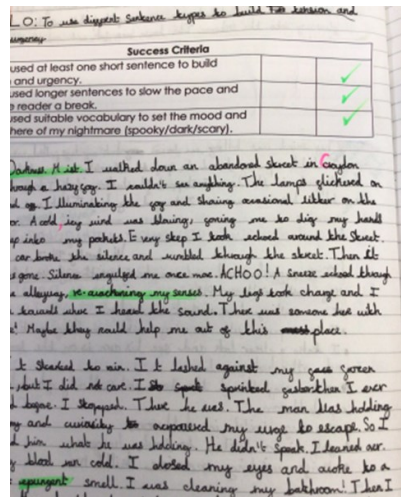 LO: To use different sentence types to build tension and
urgency.
Success Criteria
used at least one short sentence to build
and urgency.
used longer sentences to slow the pace and
reader a break.
used suitable vocabulary to set the mood and
here of my nightmare (spooky/dark/scary).
Darkness. Mist. I walked down an abandoned street in Croydon
through a hazy fog. I couldn't see anything. The lamps flickered on
and off. Illuminating the fog and sharing occasional on the
A cold, icy wind was blowing, me to dig my hands
into my pockets. Every step I took echoed around the street.
car broke the silence and through the street. Then it
gone. Silence engulfed me once more. ACHOO! A sneeze echoed through
alleyway, my senses. My legs took charge and I
towards where I heard the sound. There was someone here with
! Maybe they could help me out of this place.
It started to rain. It lashed against my frozen
but I did not care. I sprinted faster than I ever
before. I stopped. There he was. The man was holding
and curiosity my urge to escape. So I
him what he was holding. He didn't speak. I leaned over.
blood ran cold. I closed my eyes and awoke to a
smell. I was cleaning my bathroom! Then I